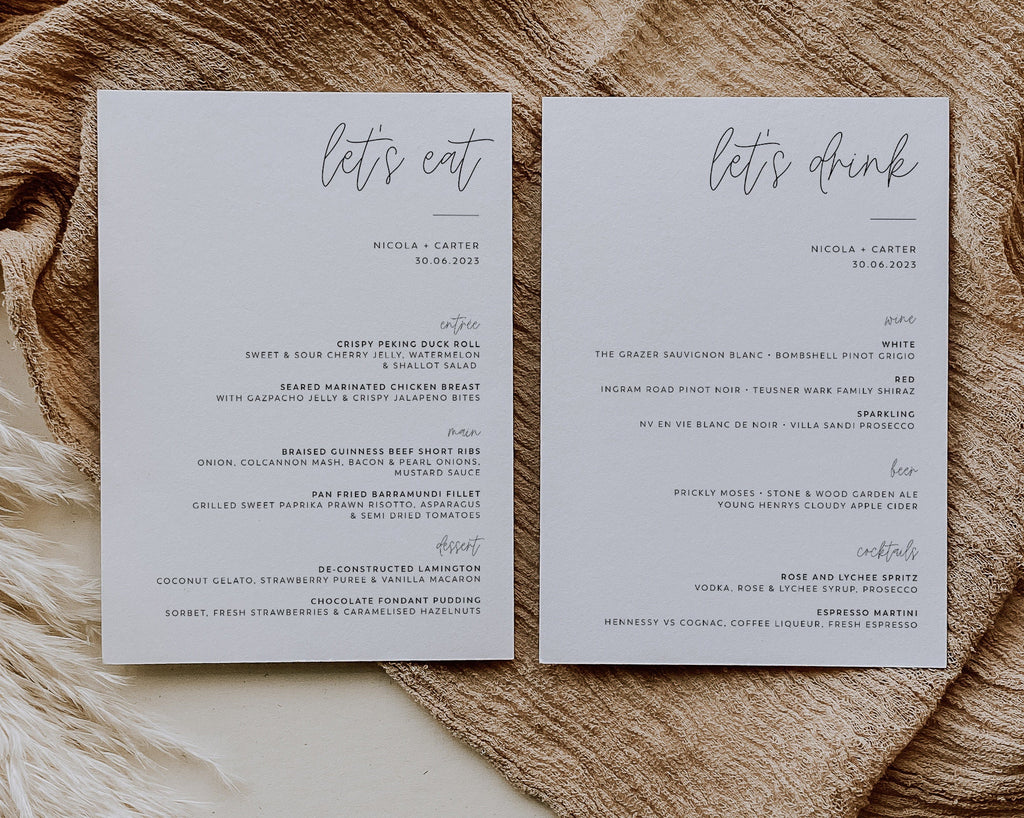 let's eat
NICOLA + CARTER
30.06.2023
entrée
CRISPY PEKING DUCK ROLL
SWEET & SOUR CHERRY JELLY, WATERMELON
& SHALLOT SALAD
SEARED MARINATED CHICKEN BREAST
WITH GAZPACHO JELLY & CRISPY JALAPENO BITES
main
BRAISED GUINNESS BEEF SHORT RIBS
ONION, COLCANNON MASH, BACON & PEARL ONIONS,
MUSTARD SAUCE
PAN FRIED BARRAMUNDI FILLET
GRILLED SWEET PAPRIKA PRAWN RISOTTO, ASPARAGUS
& SEMI DRIED TOMATOES
dessert
DE-CONSTRUCTED LAMINGTON
COCONUT GELATO, STRAWBERRY PUREE & VANILLA MACARON
CHOCOLATE FONDANT PUDDING
SORBET, FRESH STRAWBERRIES & CARAMELISED HAZELNUTS
let's drink
NICOLA + CARTER
30.06.2023
wine
WHITE
THE GRAZER SAUVIGNON BLANC • BOMBSHELL PINOT GRIGIO
RED
INGRAM ROAD PINOT NOIR • TEUSNER WARK FAMILY SHIRAZ
SPARKLING
NV EN VIE BLANC DE NOIR • VILLA SANDI PROSECCO
beer
PRICKLY MOSES • STONE & WOOD GARDEN ALE
YOUNG HENRYS CLOUDY APPLE CIDER
cocktails
ROSE AND LYCHEE SPRITZ
VODKA, ROSE & LYCHEE SYRUP, PROSECCO
ESPRESSO MARTINI
HENNESSY VS COGNAC, COFFEE LIQUEUR, FRESH ESPRESSO